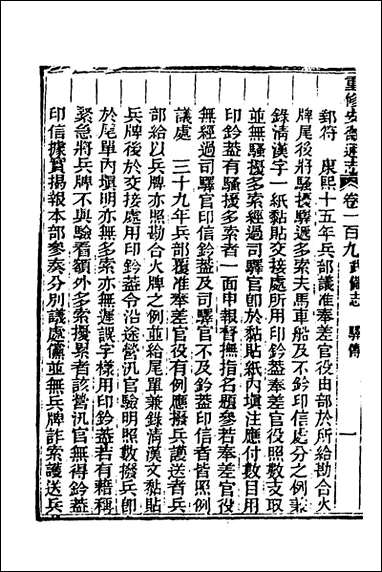 重修安徽通志 卷一百九 武備志 驛傳 一
郵符 康熙十五年兵部議准奉差官役由部於所給勘合火
牌尾後將騷擾驛遞多索夫馬車船及不鈐印信處分之例兼
錄清漢字一紙黏貼交接處所用印鈐蓋奉差官役照數支取
並無騷擾多索經過司驛官卽於黏貼紙內塡注應付數目用
印鈐蓋有騷擾多索者一面申報督撫指名題參若奉差官役
無經過司驛官印信鈐蓋及司驛官不及鈐蓋印信者皆照例
議處 三十九年兵部覆准奉差官役有例應撥兵護送者兵
部給以兵牌亦照勘合火牌之例並給尾單兼錄清漢文黏貼
兵牌後於交接處用印鈐蓋令沿途營汛官驗明照數撥兵卽
於尾單內塡明亦無多索亦無遲誤字樣用印鈐蓋若有藉稱
緊急將兵牌不與驗看額外多索擾累者該營汛官無得鈐蓋
印信據實揭報本部參奏分別議處儻並無兵牌詐索護送兵